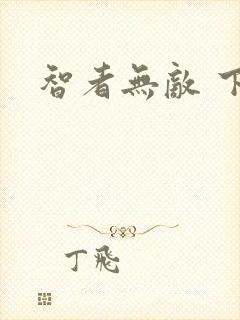 智者無敵 下
丁飛